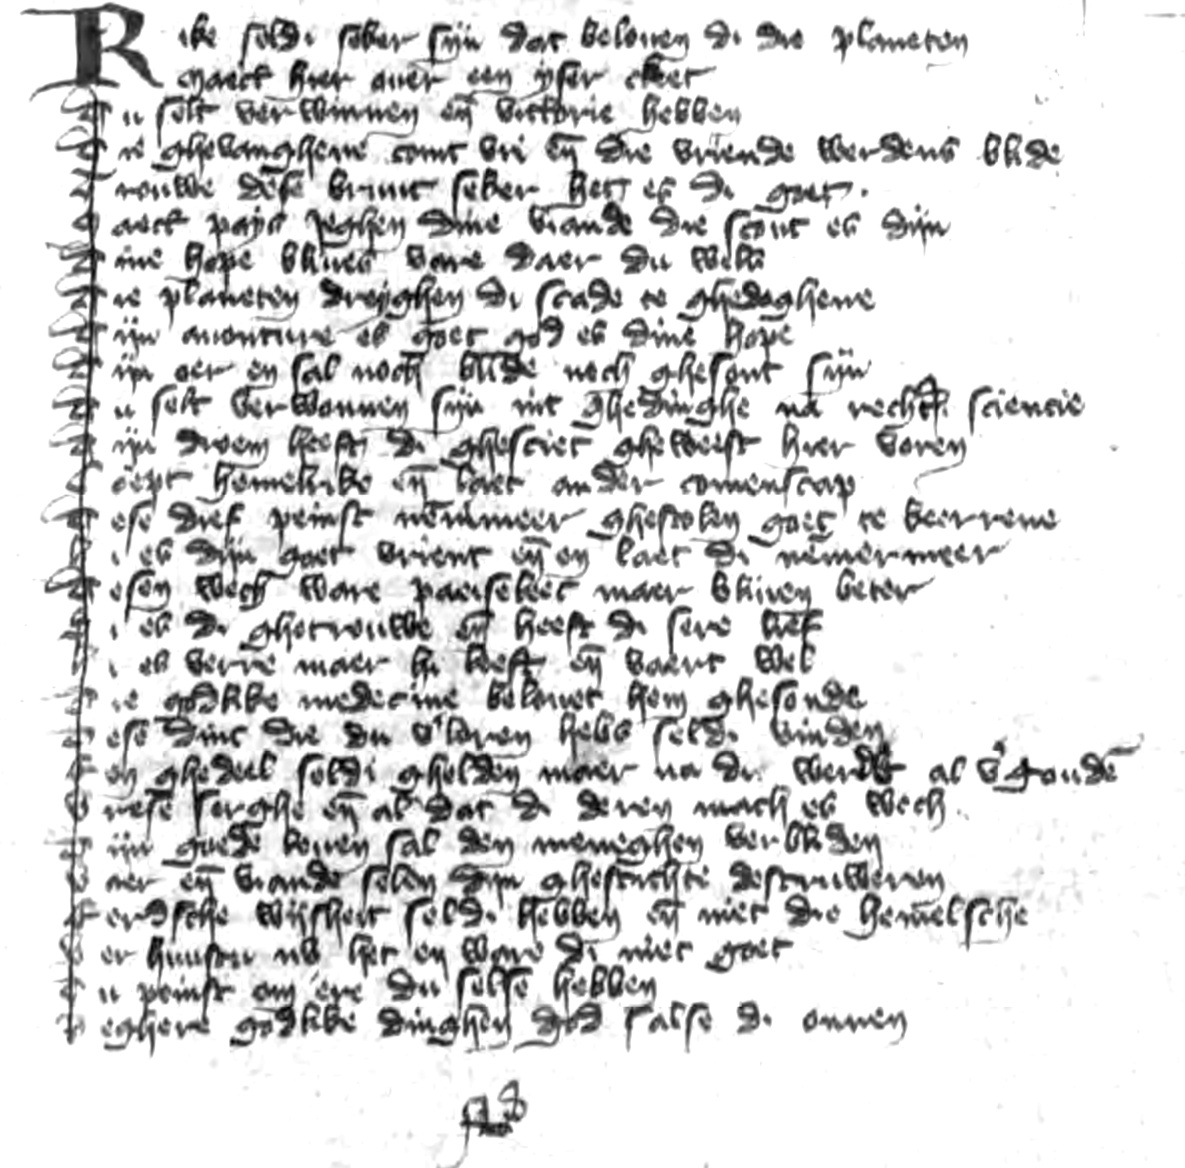 Rike seldi seker sijn dat beloven di die planeten
Maect hier over een yser cleet
Du selt verwinnen en̄ victorie hebben
Die ghevanghene comt vri en̄ die vriende werdens blide
Trouwe dese bruut seker het es di goet.
Maect pays jeghen dine viande die scout es dijn
Dine hope blives vare daer du wels
Die planeten dreyghen di scade te ghedoghene
Dijn avonture es goet god es dine hope
Dijn oer en sal noch blide noch ghesont sijn
Du selt verwonnen sijn uut ghedinghe na recht sciencie
Dijn droem heeft di ghesciet gheweest hier voren
Coept hemelike en̄ laet ander comenscap
Dese dief peinst nēmmeer ghestolen goet te keerrene
Hi es dijn goet vrient en̄ en laet di nēmermeer
Desen wech ware pariseleec maer bliven beter
Hi es di ghetrouwe en̄ heeft di sere lief
Hi es verre maer hi leeft en̄ vaert wel
Die godlike medecine belovet hem ghesonde
Dese dinc die du v'loren hebs seldi vinden
Een ghedeel seldi ghelden maer na di werdet al v'gouden
Vrese serghe en̄ al dat di deren mach es wech
Dijn goede leven sal den meneghen verbliden
Vaer en̄ viande selen dijn ghestichte destruweren
Eerdsche wijsheit seldi hebben en̄ niet die hemelsche
Ver huustu nu het en ware di niet goet
Du peinst om ere du selse hebben
Beghere godlike dinghen god salse di onnen